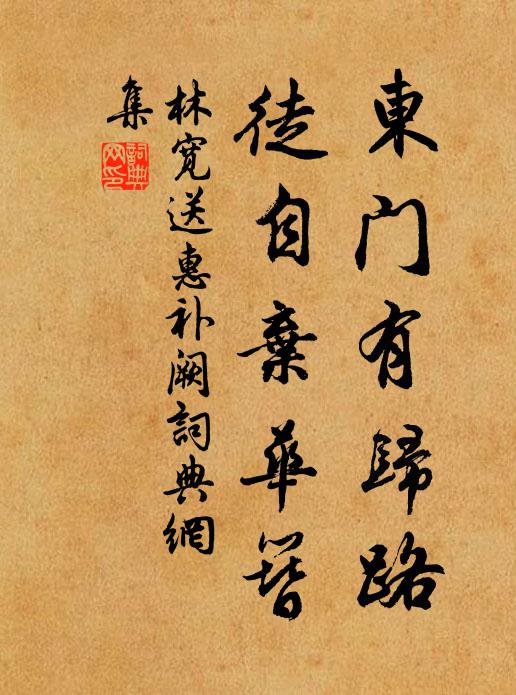 東门有歸路
徒自棄華簪
林寬送惠补阙詞典網
集
詞典
网印